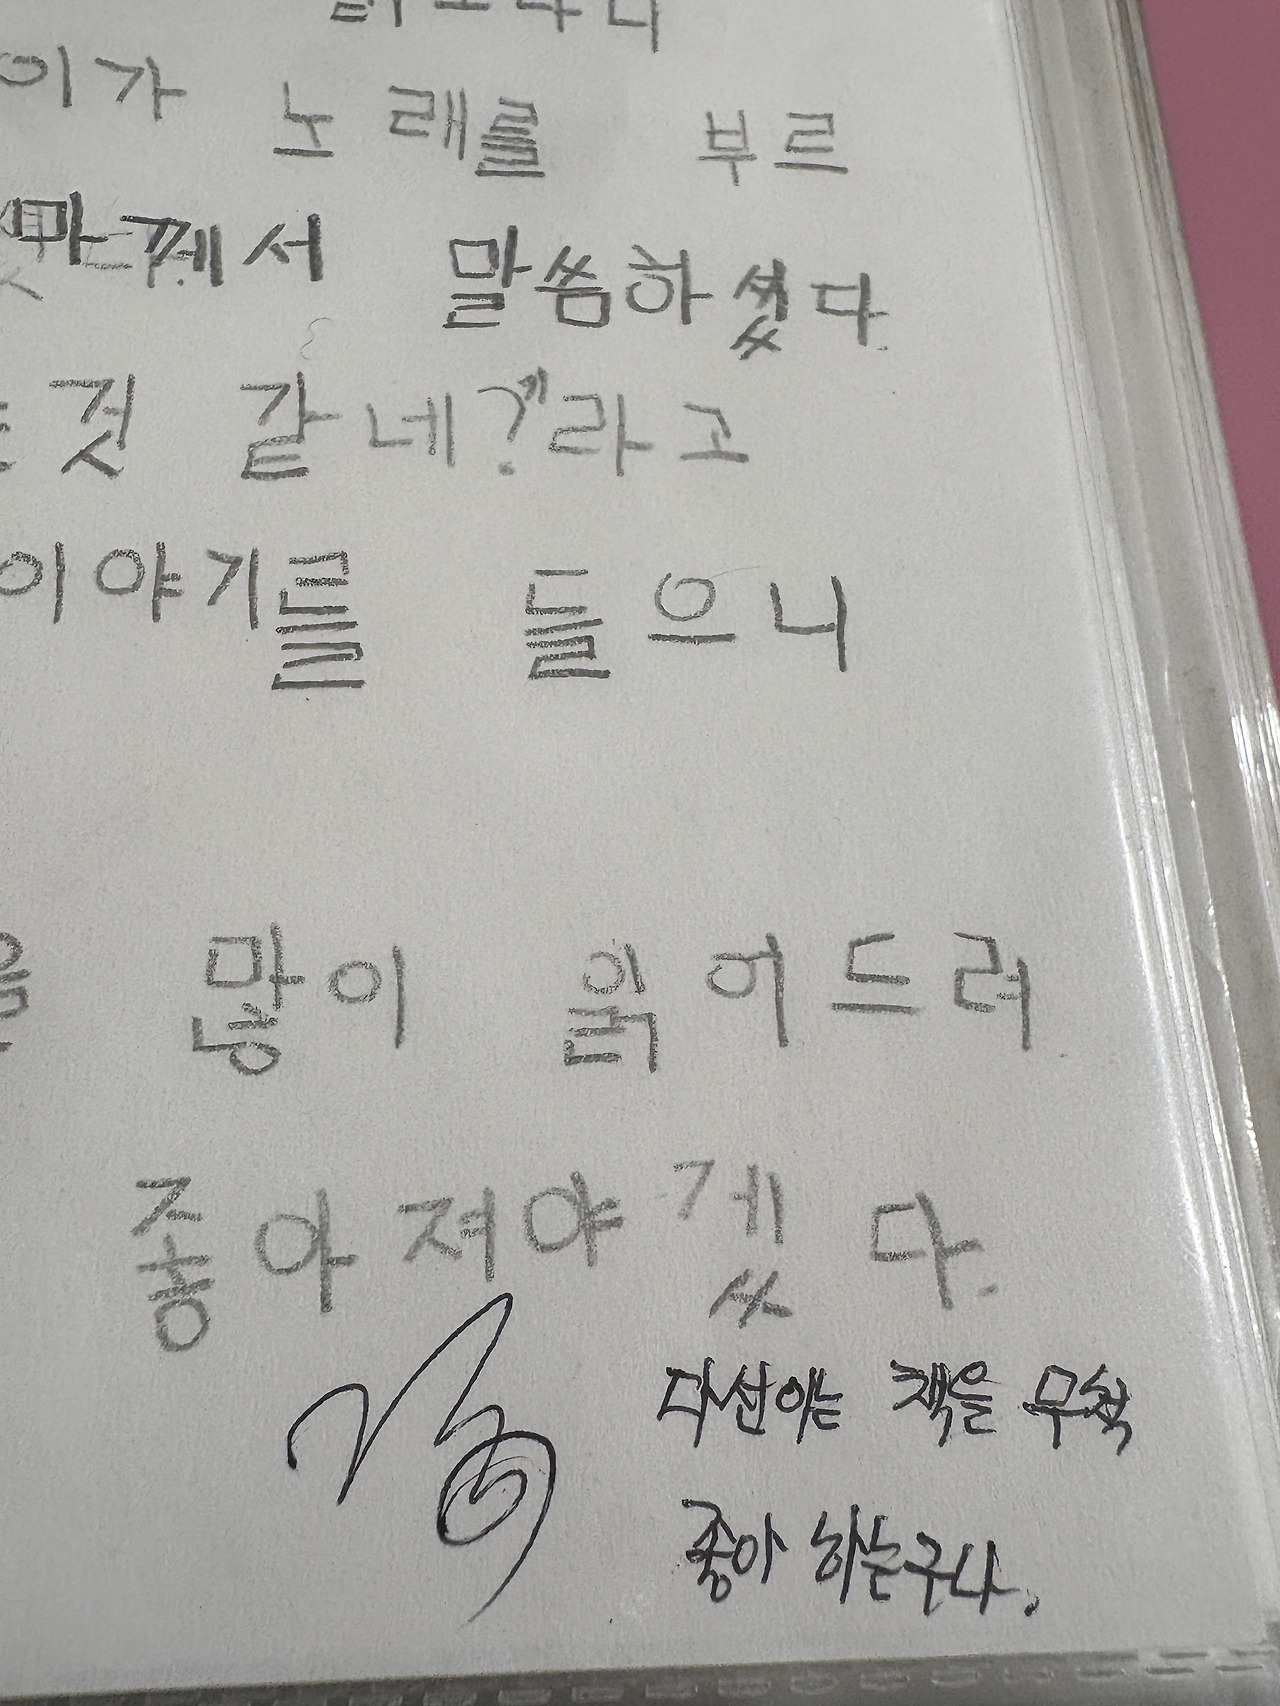 이가 노래를 부르
마께서 말씀하셨다.
것 같네?"라고
이야기를 들으니
많이 읽어드려
좋아져야겠다.
다선이는 책을 무척
좋아 하는구나.